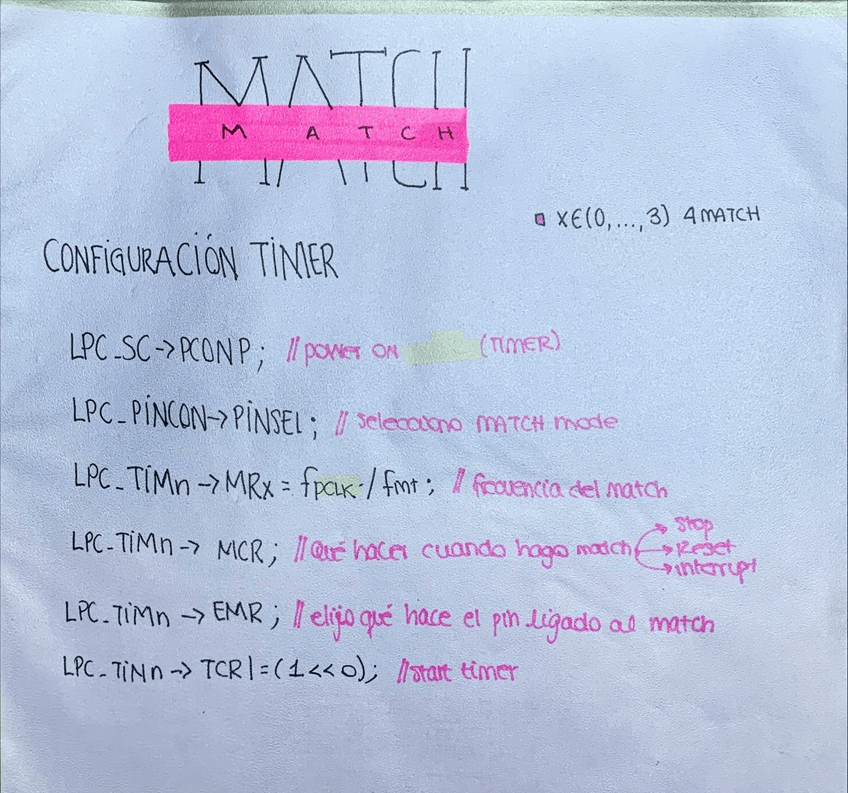 MATCH
M A T C H
x∈(0,...,3) 4 MATCH
CONFIGURACIÓN TIMER
LPC_SC->PCONP; //power on (TIMER)
LPC_PINCON->PINSEL; //selecciono MATCH mode
LPC_TIMn->MRx = fPCLK / fmt; //frecuencia del match
LPC_TIMn-> MCR; //Qué hacer cuando hago match
Stop
Reset
interrupt
LPC_TIMn -> EMR; //elijo qué hace el pin ligado al match
LPC_TIMn -> TCR|=(1<<0); //start timer